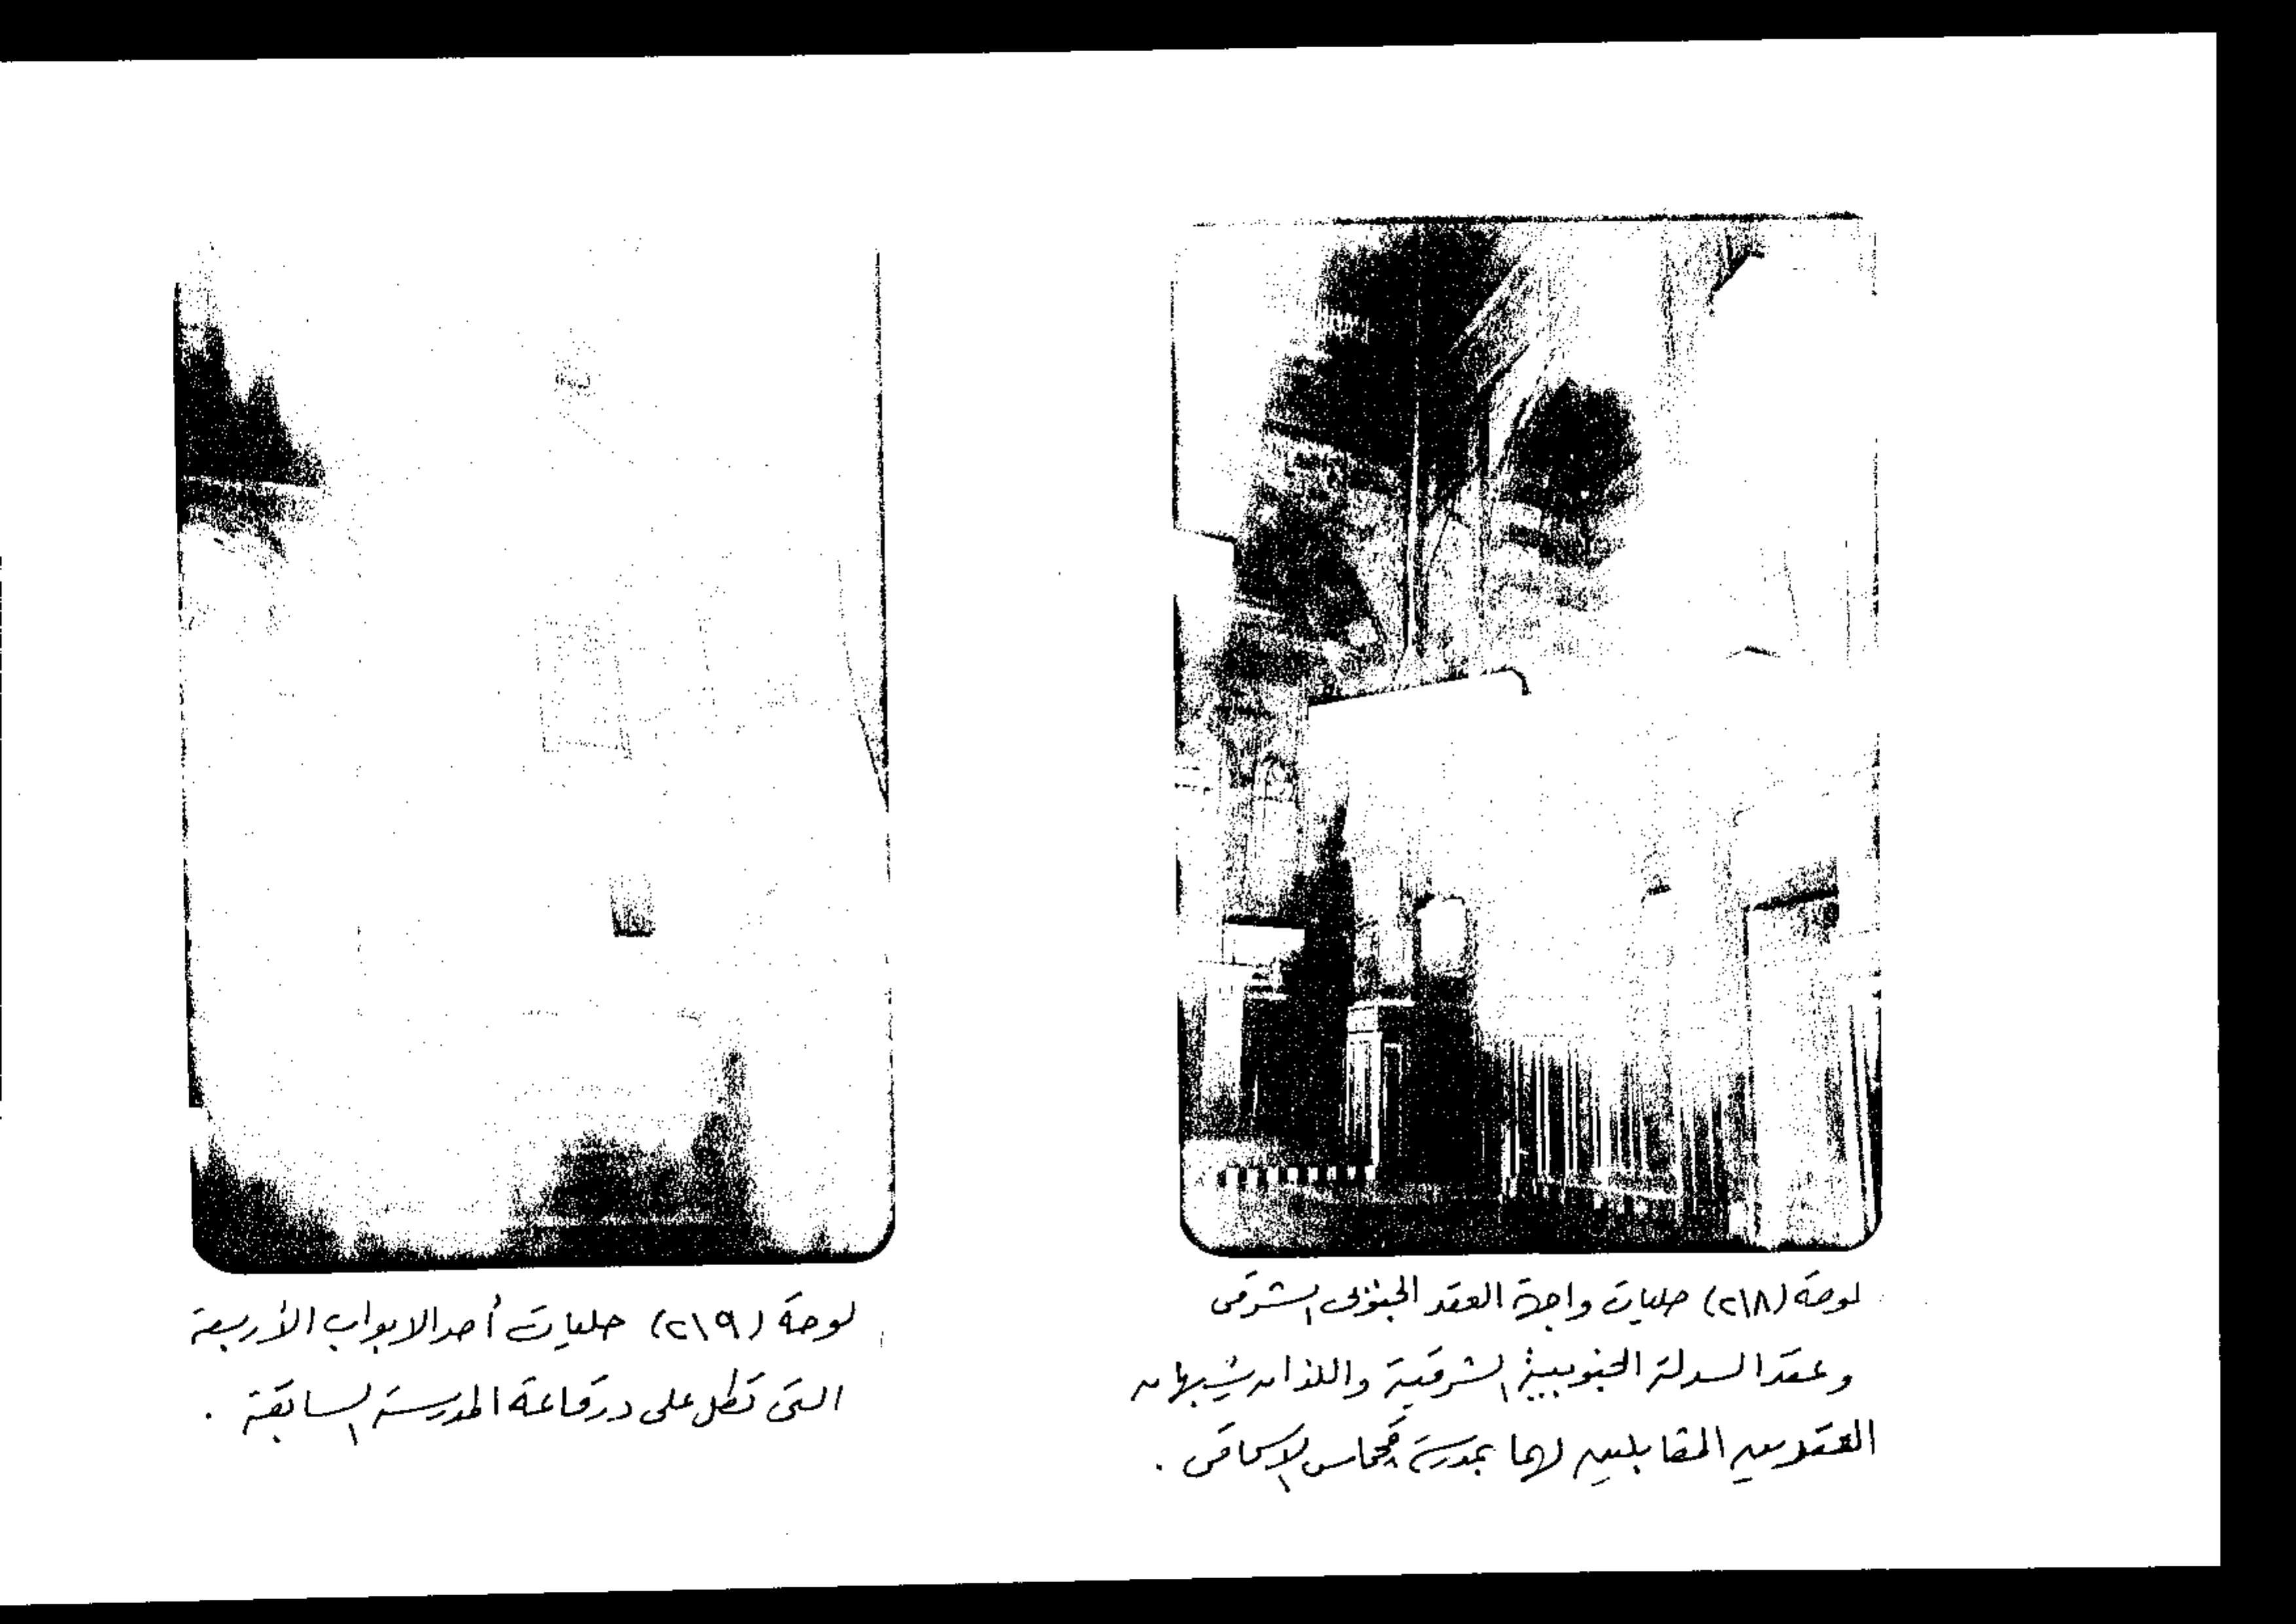 لوحة (٢١٨) حليات واجهة العقد الجنوبى الشرقى
وعقد السدلة الجنوبية الشرقية واللذان يشبهان
العقدين المقابلين لهما بمدرسة قجماس الإسحاقى .
لوحة (٢١٩) حليات أحد الابواب الأربعة
التى تطل على درقاعة المدرسة السابقة .